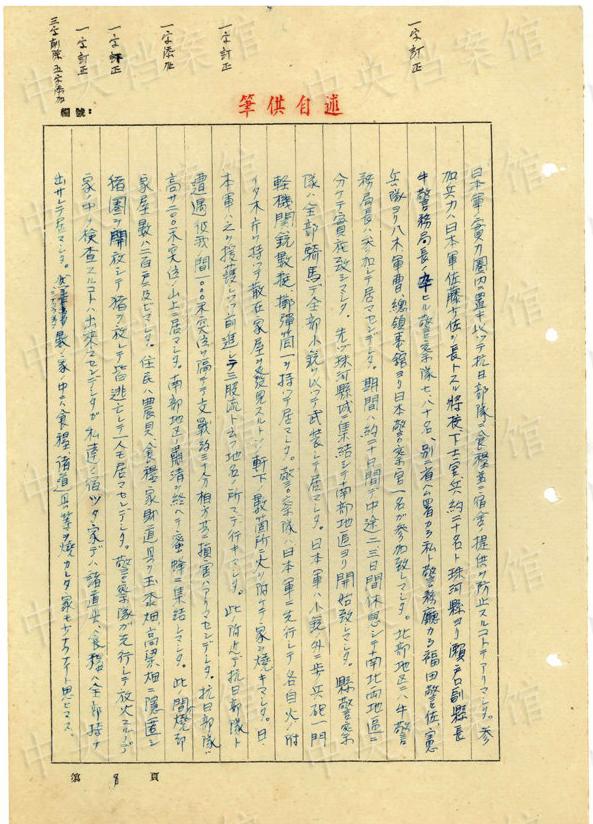 一字訂正
一字訂正
一字添加
一字訂正
一字訂正
三字削除 五字添加
筆供自述
編號:
日本軍ノ實力圏内ニ置キ以ッテ抗日部隊ニ食糧並ニ宿舎ノ提供ヲ防止スルコトデアリマシタ。参
加兵力ハ日本軍佐藤少佐ヲ長トスル將校、下士官兵約二十名ト珠河縣ヨリ瀬戸副縣長
牛警務局長ノ率ヒル警察隊七、八十名、別ニ省公署カラ私ト警務廳カラ福田警佐憲
兵隊ヨリ八木軍曹總領事館ヨリ日本警察官一名ガ参加致シマシタ。北部地区ニハ牛警
務局長ハ参加シテ居マセンデシタ。期間ハ約二十日間デ中途二三日間休憩シテ南北両地區ニ
分ケテ實施致シマシタ。先ヅ珠河縣城ニ集結シテ南部地區ヨリ開始致シマシタ。縣警察
隊ハ全部騎馬デ全部小銃ヲ以ッテ武装シテ居マシタ。日本軍ハ小銃ノ外ニ歩兵砲一門
軽機関銃數挺擲彈筒一ヲ持ッテ居マシタ。警察隊ハ日本軍ニ先行シテ各自火ノ附
イタ木片ヲ持ッテ散在家屋ヲ發見スルト 軒下 數箇所ニ火ヲ附ケテ家ヲ焼キマシタ。日
本軍ハ之ヲ援護シツツ前進シテ三股流ト云フ地名ノ所マデ行キマシタ。此附近デ抗日部隊ト
遭遇彼我ノ間一〇〇〇米突位ヲ隔テテ交戰 相方共ニ損害ハアリマセンデシタ。抗日部隊ハ
高サ二〇〇米突位ノ山上ニ居マシタ。南部地区ノ肅清ヲ終ヘテ蜜蜂ニ集結シマシタ。此ノ間焼却
家屋數ハ二百戸ニ及ビマシタ。住民ハ農具、食糧、家財道具ヲ玉蜀黍畑高梁畑ニ隠匿シ
猪圏ヲ開放シテ猪ヲ放シテ皆逃亡シテ一人モ居マセンデシタ。警察隊ガ先行シテ放火スルノデ
家ノ中ヲ検査スルコトハ出来マセンデシタガ私達ノ宿ッタ家デハ諸道具、食糧ハ全部持チ
出サレテ居マシタ。 家ノ中ニハ食糧諸道具等ヲ焼カレタ家モ少ナクナイト思ヒマス。
第 8 頁
中央档案馆